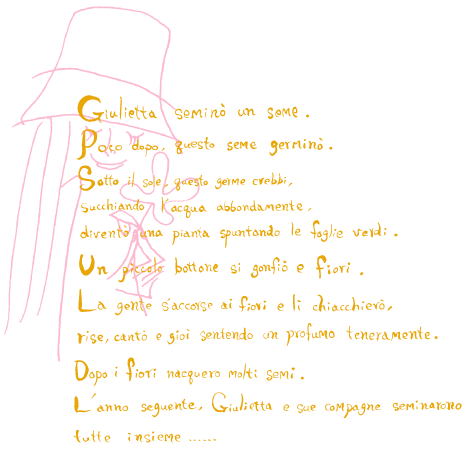 Giulietta seminò un seme.
Poco dopo, questo seme germinò.
Sotto il sole, questo germe crebbi,
succhiando l'acqua abbondamente,
diventò una pianta spuntando le foglie verdi.
Un piccolo bottone si gonfiò e fiorì.
La gente s'accorse ai fiori e li chiacchierò,
rise, cantò e gioì sentendo un profumo teneramente.
Dopo i fiori nacquero molti semi.
L'anno seguente, Giulietta e sue compagne seminarono
tutte insieme......